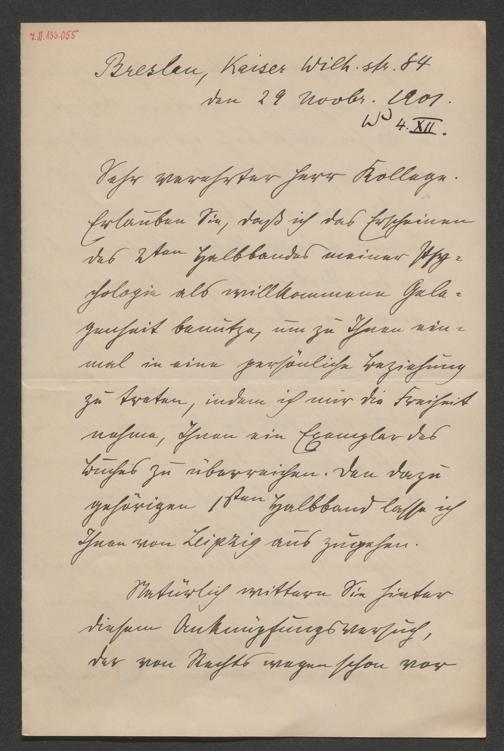 7.II.133.055
Breslau, Kaiser Wilh. str. 84
den 29 Novbr. 1901.
4. XII.
Sehr verehrter Herr Kollege.
Erlauben Sie, daß ich das Erscheinen
des 2ten Halbbandes meiner Psy-
chologie als willkommene Gele-
genheit benutze, um zu Ihnen ein-
mal in eine persönliche Beziehung
zu treten, indem ich mir die Freiheit
nehme, Ihnen ein Exemplar des
Buches zu überreichen. Den dazu
gehörigen 1sten Halbband lasse ich
Ihnen von Leipzig aus zugehen.
Natürlich wittern Sie hinter
diesem Anknüpfungsversuch,
der von Rechts wegen schon vor